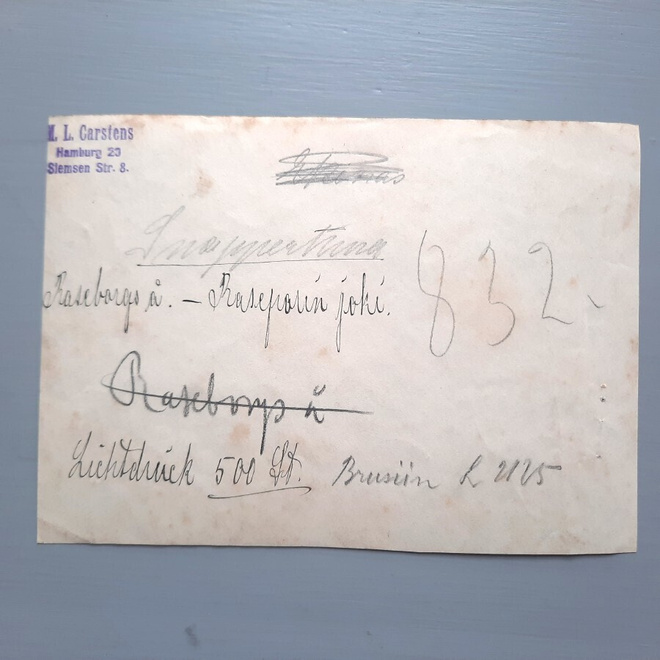 M. L. Carstens
Hamburg 23
Siemsen Str. 8.
Ekenäs
Snappertuna
832.
Raseborgs å. – Raseporin joki.
Raseborgs å
Lichtdruck 500 St. Brusiin